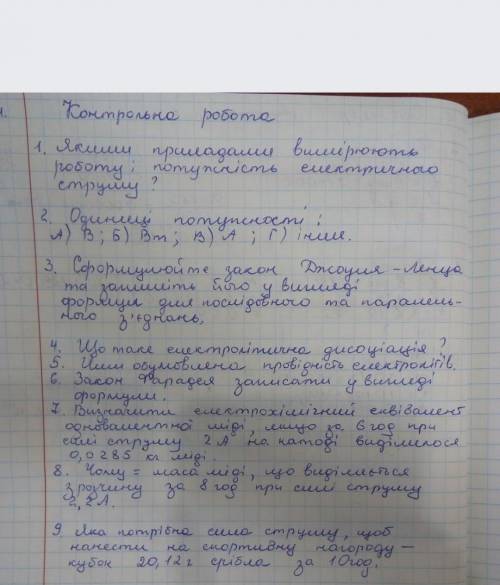 Контрольна робота
1. Якими приладами вимірюють
роботу і потужність електричного
струму ?
2. Одиниці потужності :
А) В ; Б) Вт ; В) А ; Г) інше.
3. Сформулюйте закон Джоуля - Ленца
та запишіть його у вигляді
формули для послідовного та паралель-
ного з'єднань.
4. Що таке електролітична дисоціація ?
5. Чим обумовлена провідність електролітів.
6. Закон Фарадея записати у вигляді
формули.
7. Визначити електрохімічний еквівалент
одновалентної міді, якщо за 6 год при
силі струму 2 А на катоді виділилося
0,0285 кг міді.
8. Чому = маса міді, що виділяється
з розчину за 8 год при силі струму
2,2 А.
9 Яка потрібна сила струму, щоб
нанести на спортивну нагороду —
кубок 20,12 г срібла за 10 год.